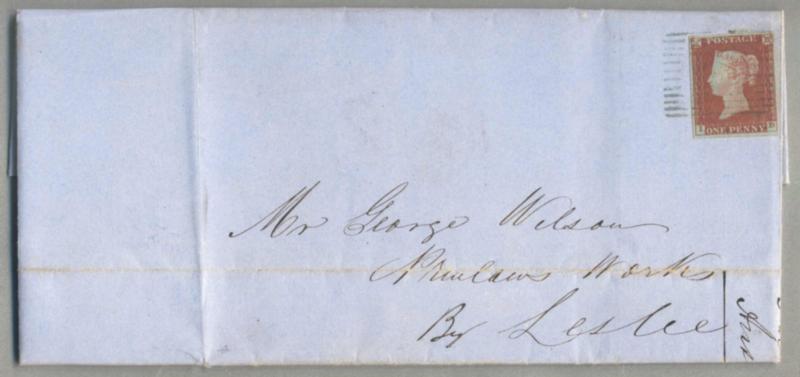 POSTAGE
ONE PENNY
Mr George Wilson
Works
By Leslie